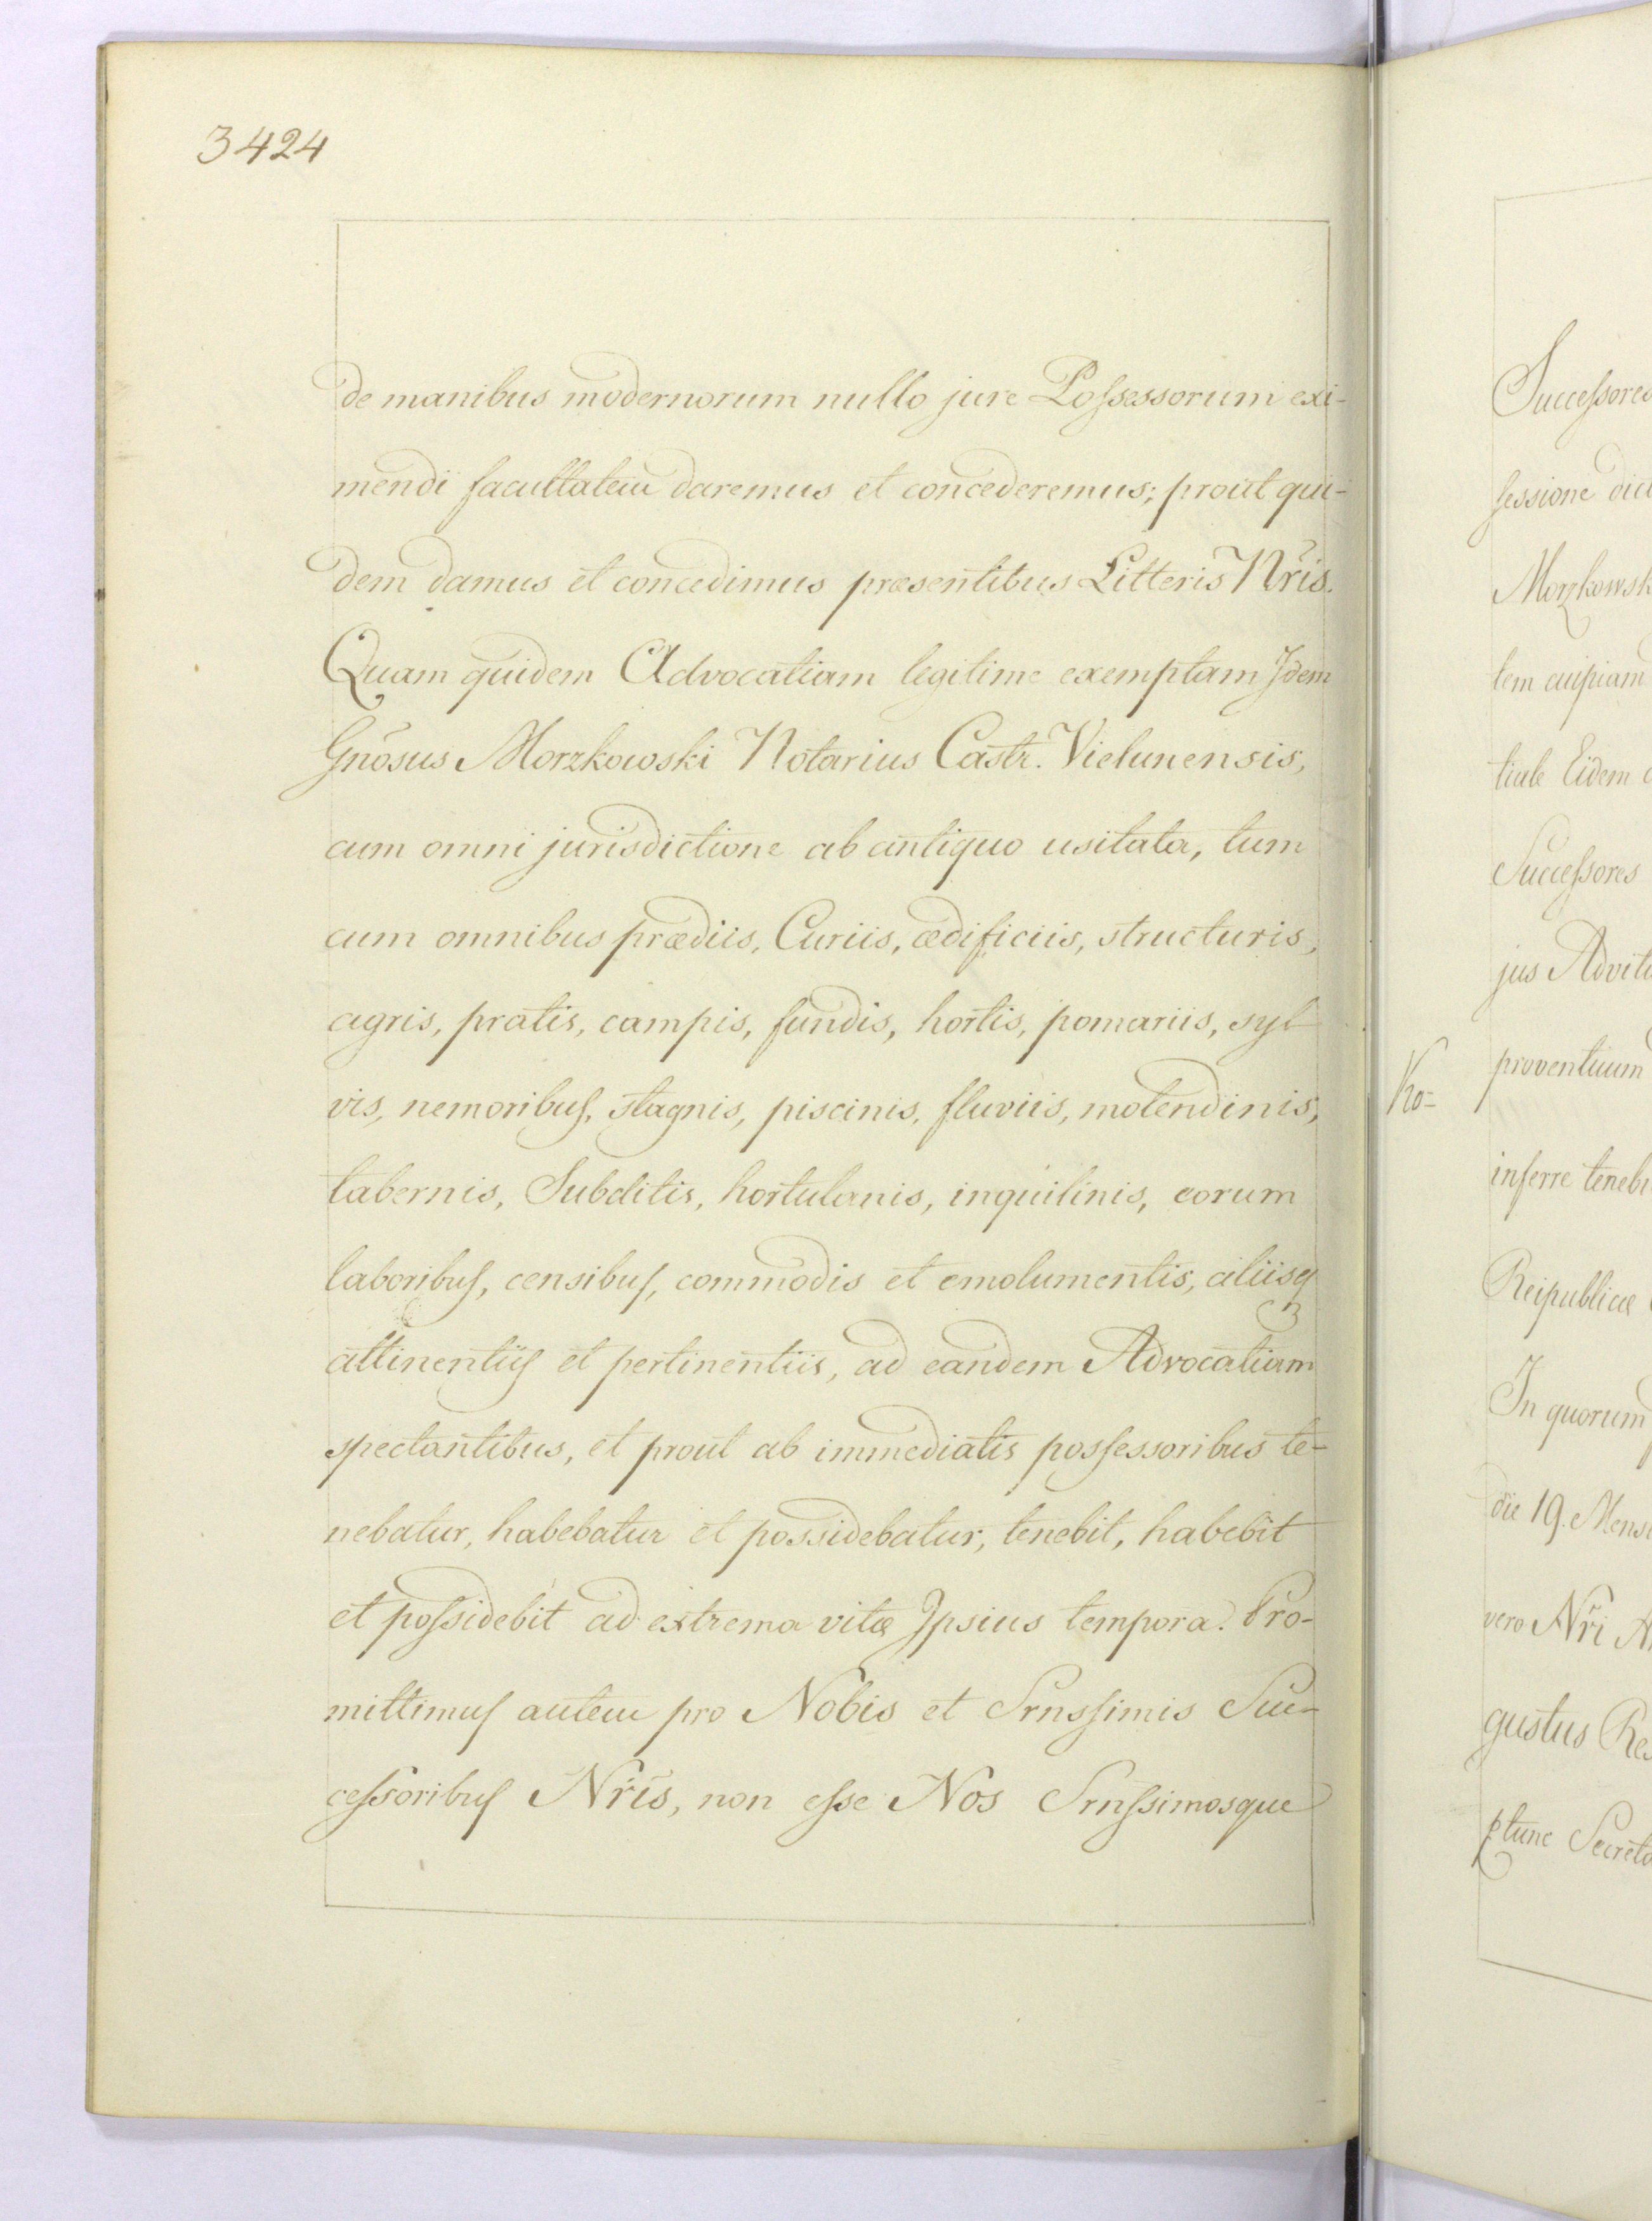 3424
de manibus modernorum nullo jure Possessorum exi-
mendi facultatem daremus et concederemus; prout qui-
dem damus et concedimus præsentibus Litteris Nr̃is.
Quam quidem Advocatiam legitime exemptam Idem
Gnõsus Morzkowski Notarius Castr. Vielunensis,
cum omni jurisdictione ab antiquo usitata, tum
cum omnibus prædiis, Curiis, ædificiis, structuris,
agris, pratis, campis, fundis, hortis, pomariis, syl-
vis, nemoribus, stagnis, piscinis, fluviis, molendinis,
tabernis, Subditis, hortulanis, inquilinis, eorum
laboribus, censibus, commodis et emolumentis, aliisq
attinentiis et pertinentiis, ad eandem Advocatiam
spectantibus, et prout ab immediatis possessoribus te-
nebatur, habebatur et possidebatur, tenebit, habebit
et possidebit ad extrema vitæ Ipsius tempora. Pro-
mittimus autem pro Nobis et Srnssimis Suc-
cessoribus Nr̃is, non esse Nos Srnssimosque
Successores
sessione
Morzkowsk
tem cuipiam
tiale Eidem
Successores
jus
Ko=
proventuum
inferre
Reipublicæ
In quorum
die 19. Mens
vero Nr̃i
gustus
Secreto